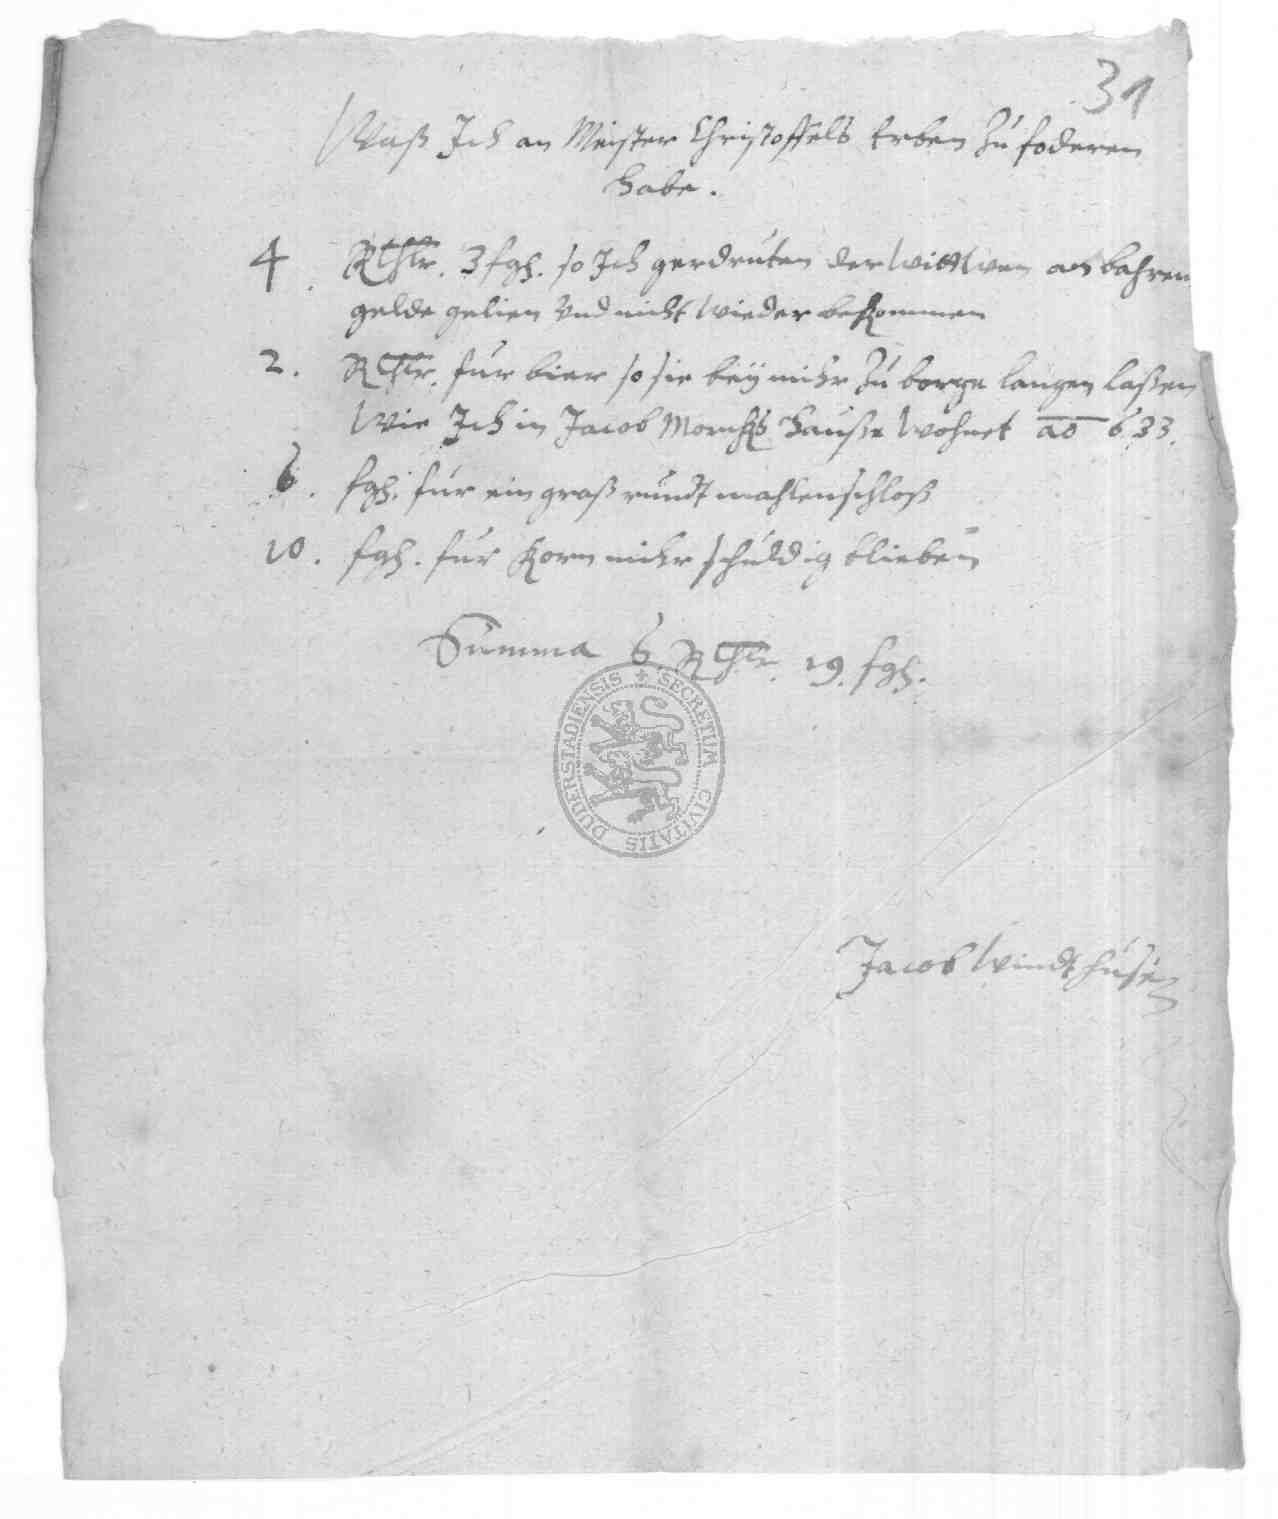 31
Waß Ich an Meister Christoffels Erben zu foderen
habe.
4. Rthlr. 3 fgh. so Ich gerdruten der Wittwen an bahren
gelde gelien Vnd nicht Wieder bekommen
2. Rthlr. für bier so sie bey mihr zu borge langen laßen
Wie Ich in Jacob hauße Wohnet ao 633.
6. fgh. für ein groß rundt mahlenschloß
10. fgh. für Korn mihr schuldig blieben
Summa 6 Rthlr. 19. fgh.
SECRETUM CIVITATIS DUDERSTADIENSIS
Jacob Windthusen